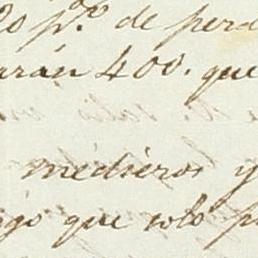 20 p.º de perd
arán 400. que
medieros y
igo que solo p